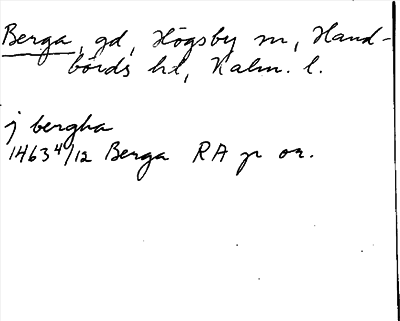 Berga, gd, Högsby sn, Hand-
börds hd, Kalm. l.
j bergha
1463 4/12 Berga RA p or.